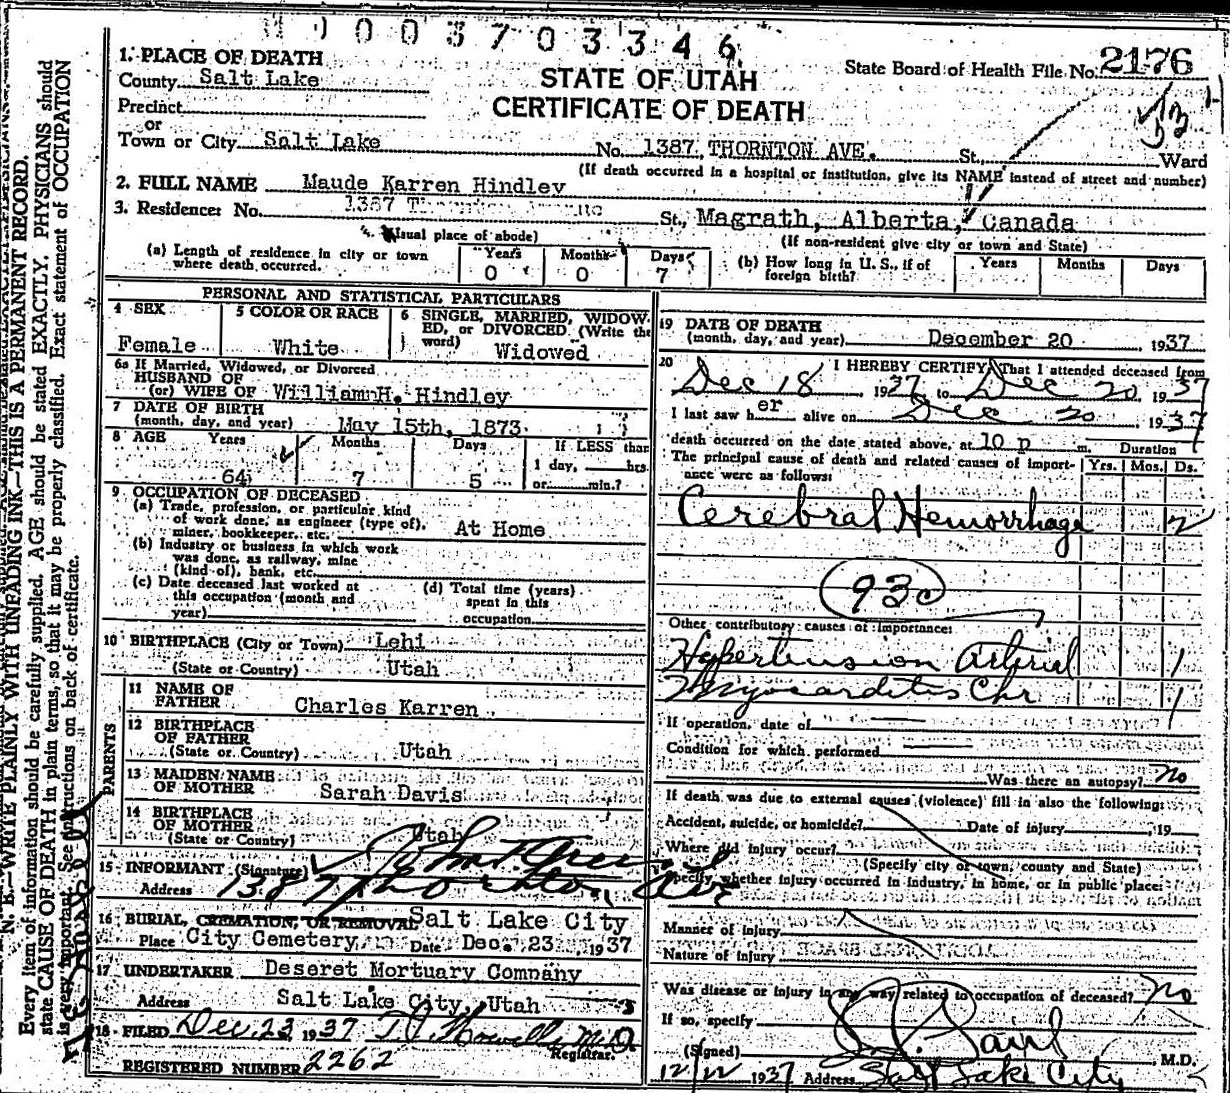 0 0 3 7 0 3 3 4 6
1. PLACE OF DEATH
County Salt Lake
STATE OF UTAH
CERTIFICATE OF DEATH
State Board of Health File No. 2176
Precinct
or
Town or City Salt Lake No. 1387 THORNTON AVE. St., Ward
(If death occurred in a hospital or institution, give its NAME instead of street and number)
2. FULL NAME Maude Karren Hindley
3. Residence: No. 1387 St., Magrath, Alberta, Canada
(Usual place of abode) (If non-resident give city or town and State)
(a) Length of residence in city or town where death occurred. Years 0 Months 0 Days 7
(b) How long in U. S., if of foreign birth? Years Months Days
PERSONAL AND STATISTICAL PARTICULARS
4 SEX Female
5 COLOR OR RACE White
6 SINGLE, MARRIED, WIDOWED, or DIVORCED (Write the word) Widowed
6a If Married, Widowed, or Divorced
HUSBAND OF
(or) WIFE OF William H. Hindley
7 DATE OF BIRTH
(month, day, and year) May 15th, 1873
8 AGE Years 64 Months 7 Days 5 If LESS than
1 day, hrs.
or min.?
9 OCCUPATION OF DECEASED
(a) Trade, profession, or particular kind
of work done, as engineer (type of),
miner, bookkeeper, etc. At Home
(b) Industry or business in which work
was done, as railway, mine
(kind of), bank, etc.
(c) Date deceased last worked at
this occupation (month and
year)
(d) Total time (years)
spent in this
occupation
10 BIRTHPLACE (City or Town) Lehi
(State or Country) Utah
PARENTS
11 NAME OF
FATHER Charles Karren
12 BIRTHPLACE
OF FATHER
(State or Country) Utah
13 MAIDEN NAME
OF MOTHER Sarah Davis
14 BIRTHPLACE
OF MOTHER
(State or Country) Utah
15 INFORMANT (Signature)
Address 1387 Thornton Ave
16 BURIAL, CREMATION, OR REMOVAL Salt Lake City
Place City Cemetery Date Dec. 23, 1937
17 UNDERTAKER Deseret Mortuary Company
Address Salt Lake City, Utah
18 FILED Dec. 23, 1937 M.D.
Registrar.
REGISTERED NUMBER 2262
19 DATE OF DEATH
(month, day, and year) December 20 1937
20 I HEREBY CERTIFY, That I attended deceased from
Dec 18 1937 to Dec 20, 1937
I last saw her alive on Dec 20 1937
death occurred on the date stated above, at 10 p m. Duration
The principal cause of death and related causes of importance were as follows: Yrs. Mos. Ds.
Cerebral Hemorrhage 2
93c
Other contributory causes of importance:
Hypertension Arterial 1
Myocarditis Chr 1
If operation, date of
Condition for which performed
Was there an autopsy? no
If death was due to external causes (violence) fill in also the following:
Accident, suicide, or homicide? Date of injury 19
Where did injury occur?
(Specify city or town, county and State)
Specify whether injury occurred in industry, in home, or in public place:
Manner of injury
Nature of injury
Was disease or injury in any way related to occupation of deceased? no
If so, specify
(Signed) M.D.
12/22 1937 Address Salt Lake City
N. B.—WRITE PLAINLY WITH UNFADING INK—THIS IS A PERMANENT RECORD.
Every item of information should be carefully supplied. AGE should be stated EXACTLY. PHYSICIANS should
state CAUSE OF DEATH in plain terms, so that it may be properly classified. Exact statement of OCCUPATION
is very important. See instructions on back of certificate.